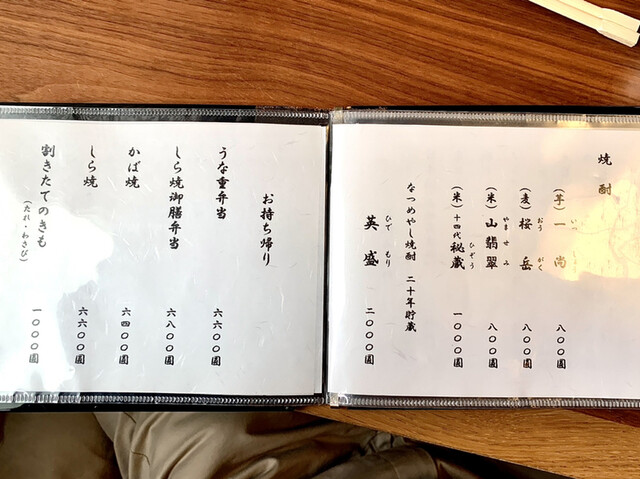 焼酎
(芋)一尚 八〇〇圓
いっしょう
(麦)桜岳 八〇〇圓
おうがく
(米)山翡翠 八〇〇圓
やませみ
(米)十四代秘蔵 一〇〇〇圓
ひぞう
なつめやし焼酎 二十年貯蔵
英盛 二〇〇〇圓
ひでもり
お持ち帰り
うな重弁当 六六〇〇圓
しら焼御膳弁当 六八〇〇圓
かば焼 六四〇〇圓
しら焼 六六〇〇圓
割きたてのきも 一〇〇〇圓
(たれ・わさび)